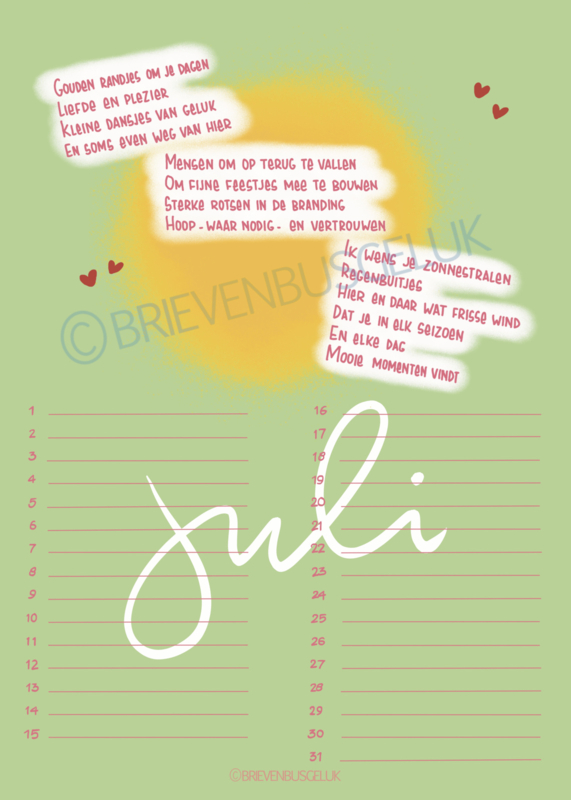 Gouden randjes om je dagen
Liefde en plezier
Kleine dansjes van geluk
En soms even weg van hier
Mensen om op terug te vallen
Om fijne feestjes mee te bouwen
Sterke rotsen in de branding
Hoop - waar nodig - en vertrouwen
Ik wens je zonnestralen
Regenbuitjes
Hier en daar wat frisse wind
Dat je in elk seizoen
En elke dag
Mooie momenten vindt
©BRIEVENBUSGELUK
juli
1
2
3
4
5
6
7
8
9
10
11
12
13
14
15
16
17
18
19
20
21
22
23
24
25
26
27
28
29
30
31
©BRIEVENBUSGELUK